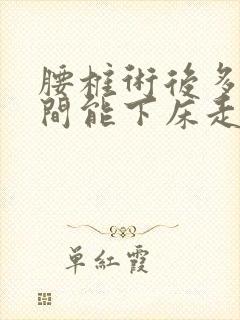 腰椎術後多
間能下床走
単紅霞